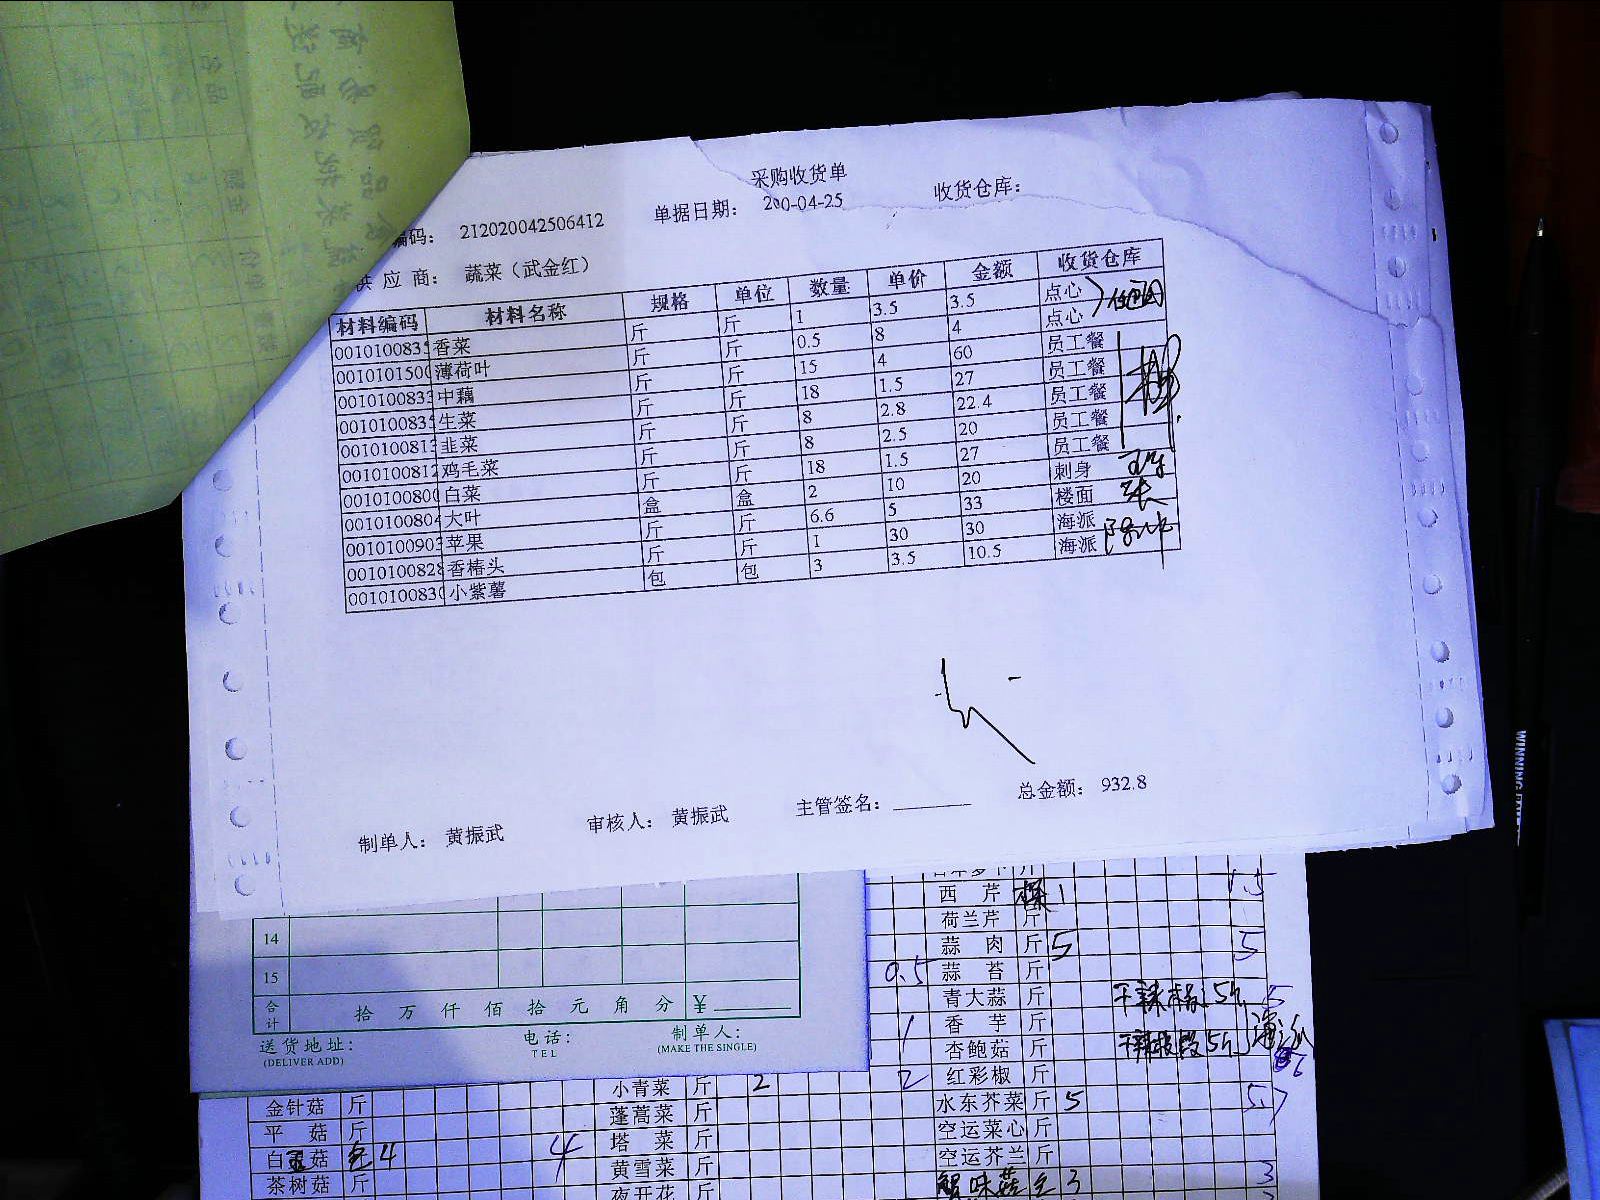 采购收货单
编码: 212020042506412 单据日期: 200-04-25 收货仓库:
供应商: 蔬菜（武金红）
材料编码 材料名称 规格 单位 数量 单价 金额 收货仓库
001010083 香菜 斤 斤 1 3.5 3.5 点心
001010150 薄荷叶 斤 斤 0.5 8 4 点心
001010083 中藕 斤 斤 15 4 60 员工餐
001010083 生菜 斤 斤 18 1.5 27 员工餐
001010081 韭菜 斤 斤 8 2.8 22.4 员工餐
001010081 鸡毛菜 斤 斤 8 2.5 20 员工餐
001010080 白菜 斤 斤 18 1.5 27 员工餐
001010080 大叶 盒 盒 2 10 20 刺身
001010090 苹果 斤 斤 6.6 5 33 楼面
001010082 香椿头 斤 斤 1 30 30 海派
001010083 小紫薯 包 包 3 3.5 10.5 海派
制单人: 黄振武 审核人: 黄振武 主管签名: 总金额: 932.8
14
15
合计 拾 万 仟 佰 拾 元 角 分 ¥
送货地址: 电话: 制单人:
(DELIVER ADD) TEL (MAKE THE SINGLE)
西芹 1 1.5
荷兰芹 斤
蒜肉 斤 5 5
0.5 蒜苔 斤
青大蒜 斤
1 香芋 斤
杏鲍菇 斤
小青菜 斤 2 2 红彩椒 斤
金针菇 斤 蓬蒿菜 斤 水东芥菜 斤 5 5.7
平菇 斤 塔菜 斤 空运菜心 斤
白玉菇 包 4 4 黄雪菜 斤 空运芥兰 斤
茶树菇 斤 夜开花 斤 蟹味菇 包 3 3
WINNING